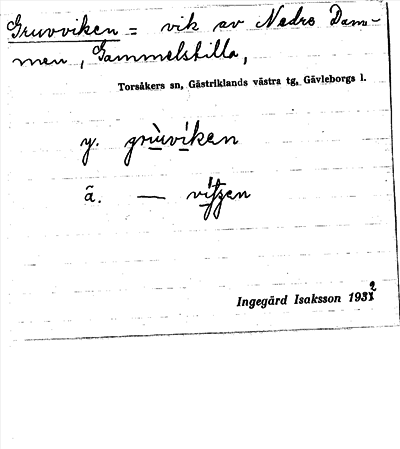 Gruvviken = vik av Nedre Dam-
men, Gammelstilla,
Torsåkers sn, Gästriklands västra tg, Gävleborgs l.
y. grùvíken
ä. —
Ingegärd Isaksson 1932